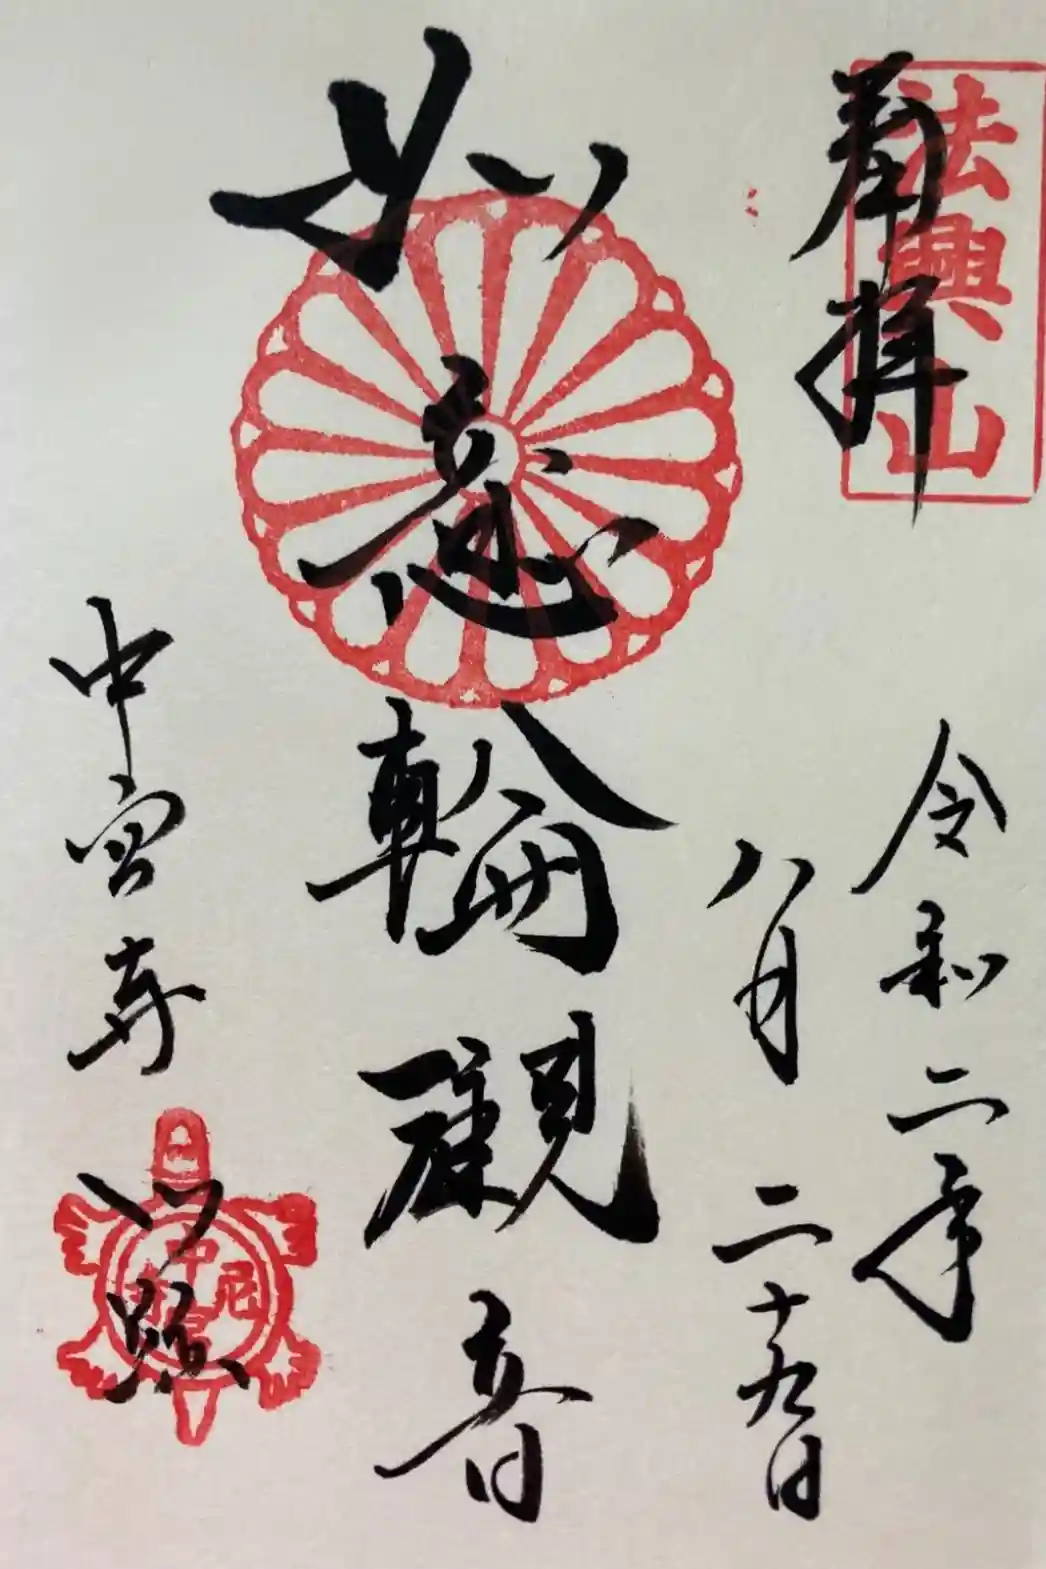 奉拝
法興山
令和二年
八月二十九日
如意輪觀音
中宮寺
中宮尼寺